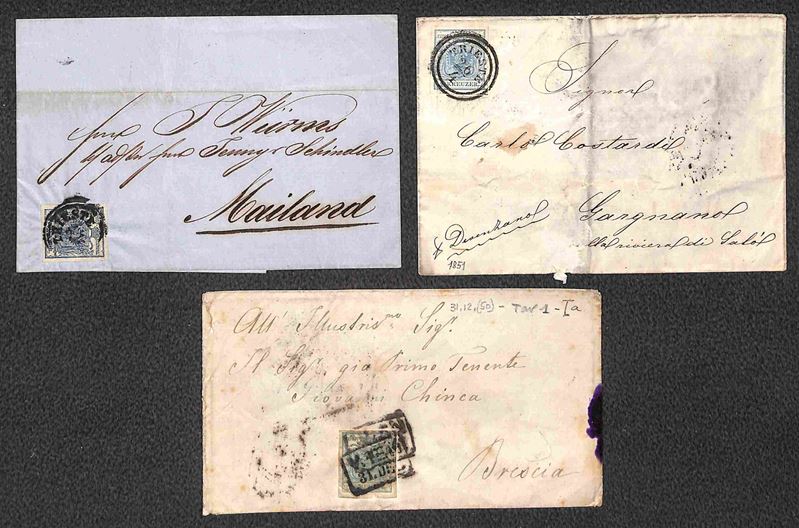 Herrn P Würms
Jenny & Schindler
Mailand
TRIEST
TRIEST
KREUZER
Signor
Carlo Costardi
Gargnano
sulla riviera di Salò
Desenzano
1851
31.12.(50) - Tav 1 - Ia
All' Illustris.mo Sigr.
Il Sigr. già Primo Tenente
Giovanni Chinca
31. DE
Brescia